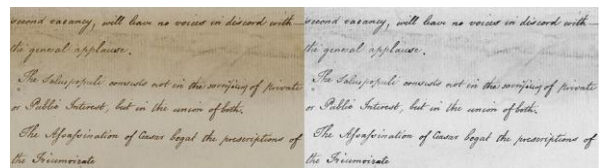 second vacancy, will leave no voices in discord with
the general applause.
The Salus populi consists not in the sacrificing of Private
or Public Interest, but in the union of both.
The Assassination of Ceasar begat the prescriptions of
the Triumvirate
second vacancy, will leave no voices in discord with
the general applause.
The Salus populi consists not in the sacrificing of Private
or Public Interest, but in the union of both.
The Assassination of Ceasar begat the prescriptions of
the Triumvirate